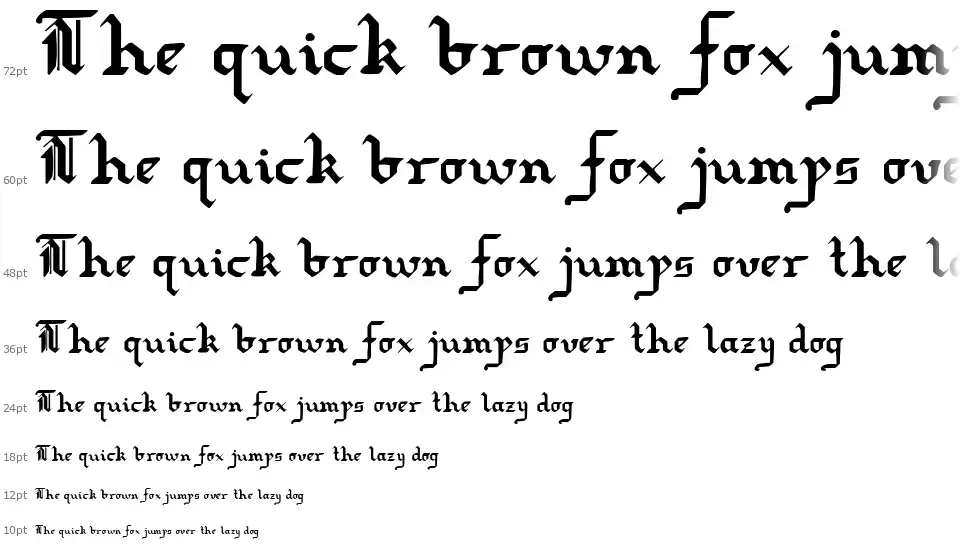 72pt The quick brown fox jum
60pt The quick brown fox jumps ove
48pt The quick brown fox jumps over the l
36pt The quick brown fox jumps over the lazy dog
24pt The quick brown fox jumps over the lazy dog
18pt The quick brown fox jumps over the lazy dog
12pt The quick brown fox jumps over the lazy dog
10pt The quick brown fox jumps over the lazy dog